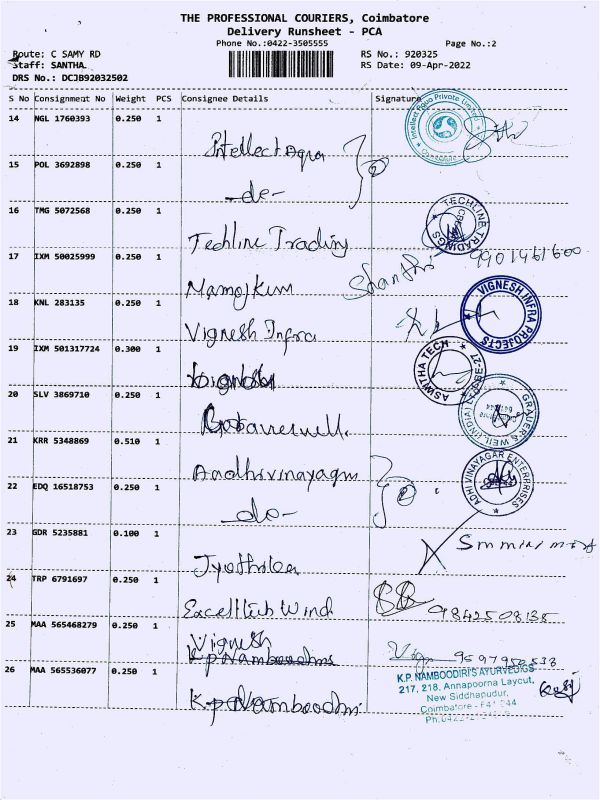 THE PROFESSIONAL COURIERS, Coimbatore
Delivery Runsheet - PCA
Phone No.:0422-3505555 Page No.:2
Route: C SAMY RD RS No.: 920325
Staff: SANTHA RS Date: 09-Apr-2022
DRS No.: DCJB92032502
S No Consignment No Weight PCS Consignee Details Signature
14 NGL 1760393 0.250 1 Intellect Aqua
15 POL 3692898 0.250 1 -do-
16 TMG 5072568 0.250 1 Techline Trading TECHLINE TRADINGS
17 IXM 50025999 0.250 1 Manojkum Shanthi 9901461600
18 KNL 283135 0.250 1 Vignesh Infra VIGNESH INFRA PROJECTS
19 IXM 501317724 0.300 1 ASWITHA TECH
20 SLV 3869710 0.250 1 GRAUER & WEIL (INDIA) LIMITED
21 KRR 5348869 0.510 1 Aadhivinayagm ADHI VINAYAGAR ENTERPRISES
22 EDQ 16518753 0.250 1 -do-
23 GDR 5235881 0.100 1
24 TRP 6791697 0.250 1 Wind 9842508135
25 MAA 565468279 0.250 1 Vignesh
26 MAA 565536077 0.250 1 K.P. Namboodiri
K.P. NAMBOODIRI'S AYURVEDICS
217, 218, Annapoorna Layout,
New Siddhapudur,
Coimbatore - 641 044